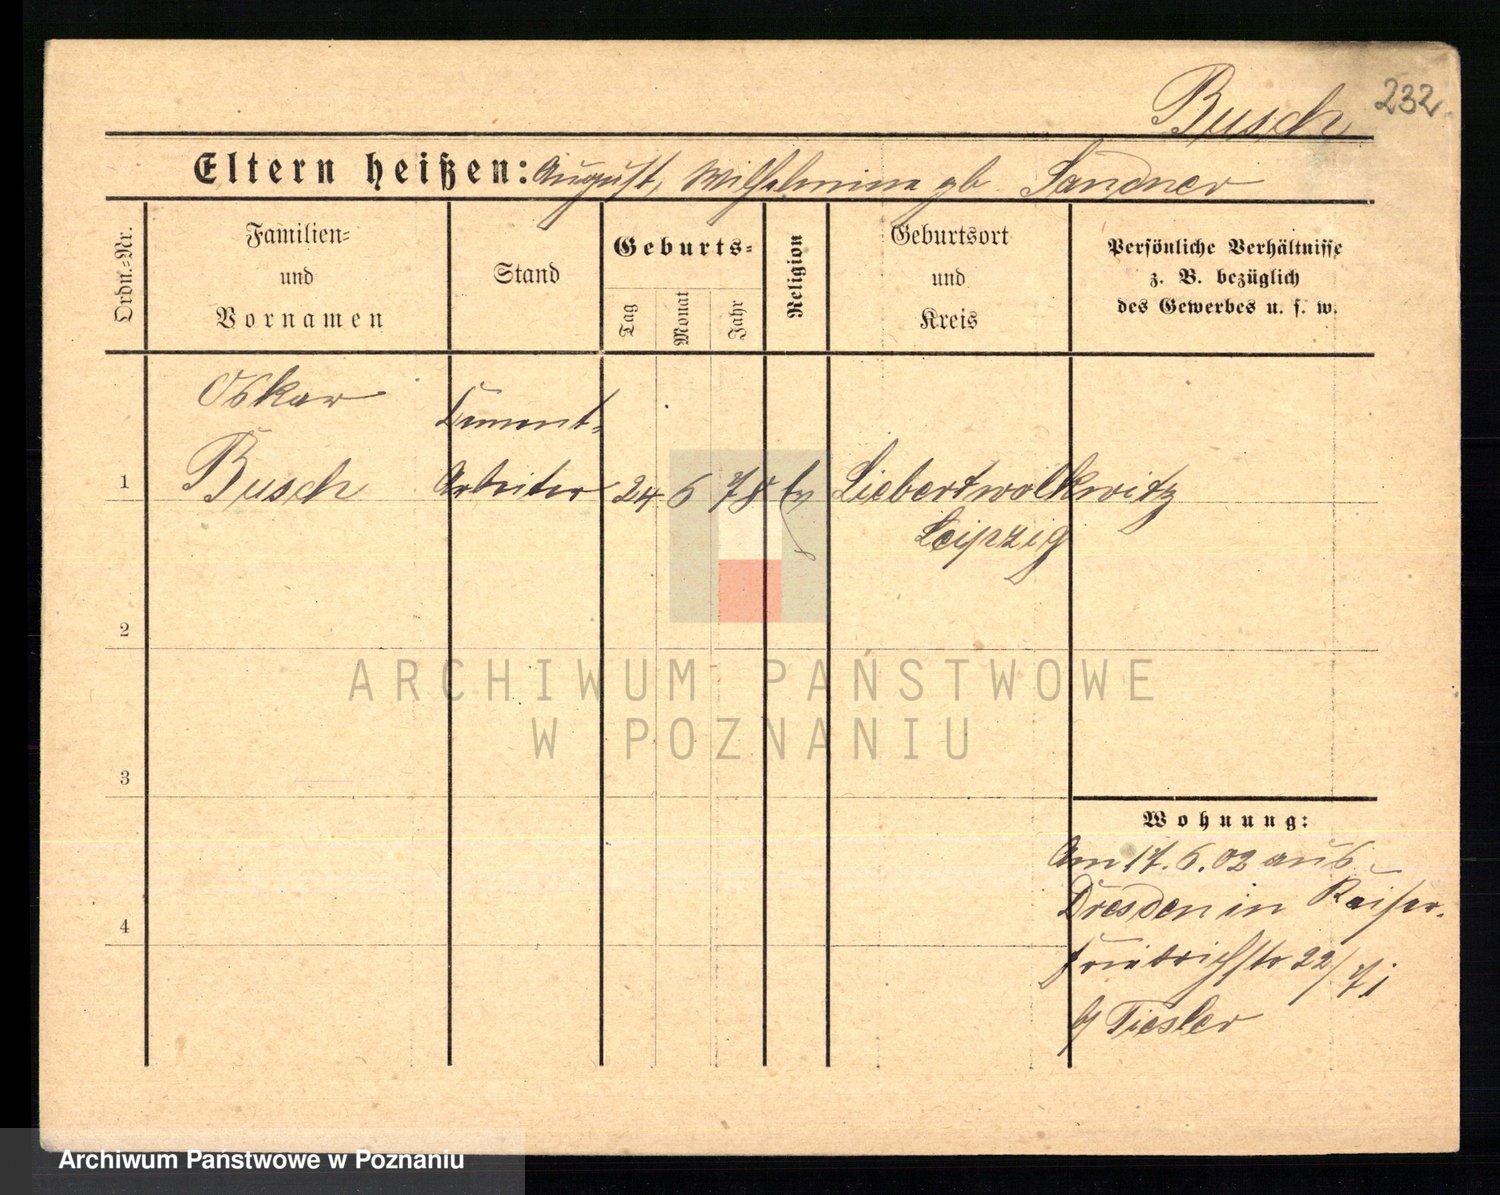 Busch 232.
Eltern heißen: August, Wilhelmine gb. Sandner
Ordn.-Nr.
Familien-
und
Vornamen
Stand
Geburts-
Tag
Monat
Jahr
Religion
Geburtsort
und
Kreis
Persönliche Verhältnisse
z. B. bezüglich
des Gewerbes u. s. w.
Oskar
Cement-
1 Busch Arbeiter 24 6 78 ev Liebertwolkwitz
Leipzig
2
3
4
ARCHIWUM PAŃSTWOWE
W POZNANIU
Wohnung:
Am 17.6.02 aus
Dresden in Kaiser-
Friedrichstr 22/
b/ Tiesler
Archiwum Państwowe w Poznaniu